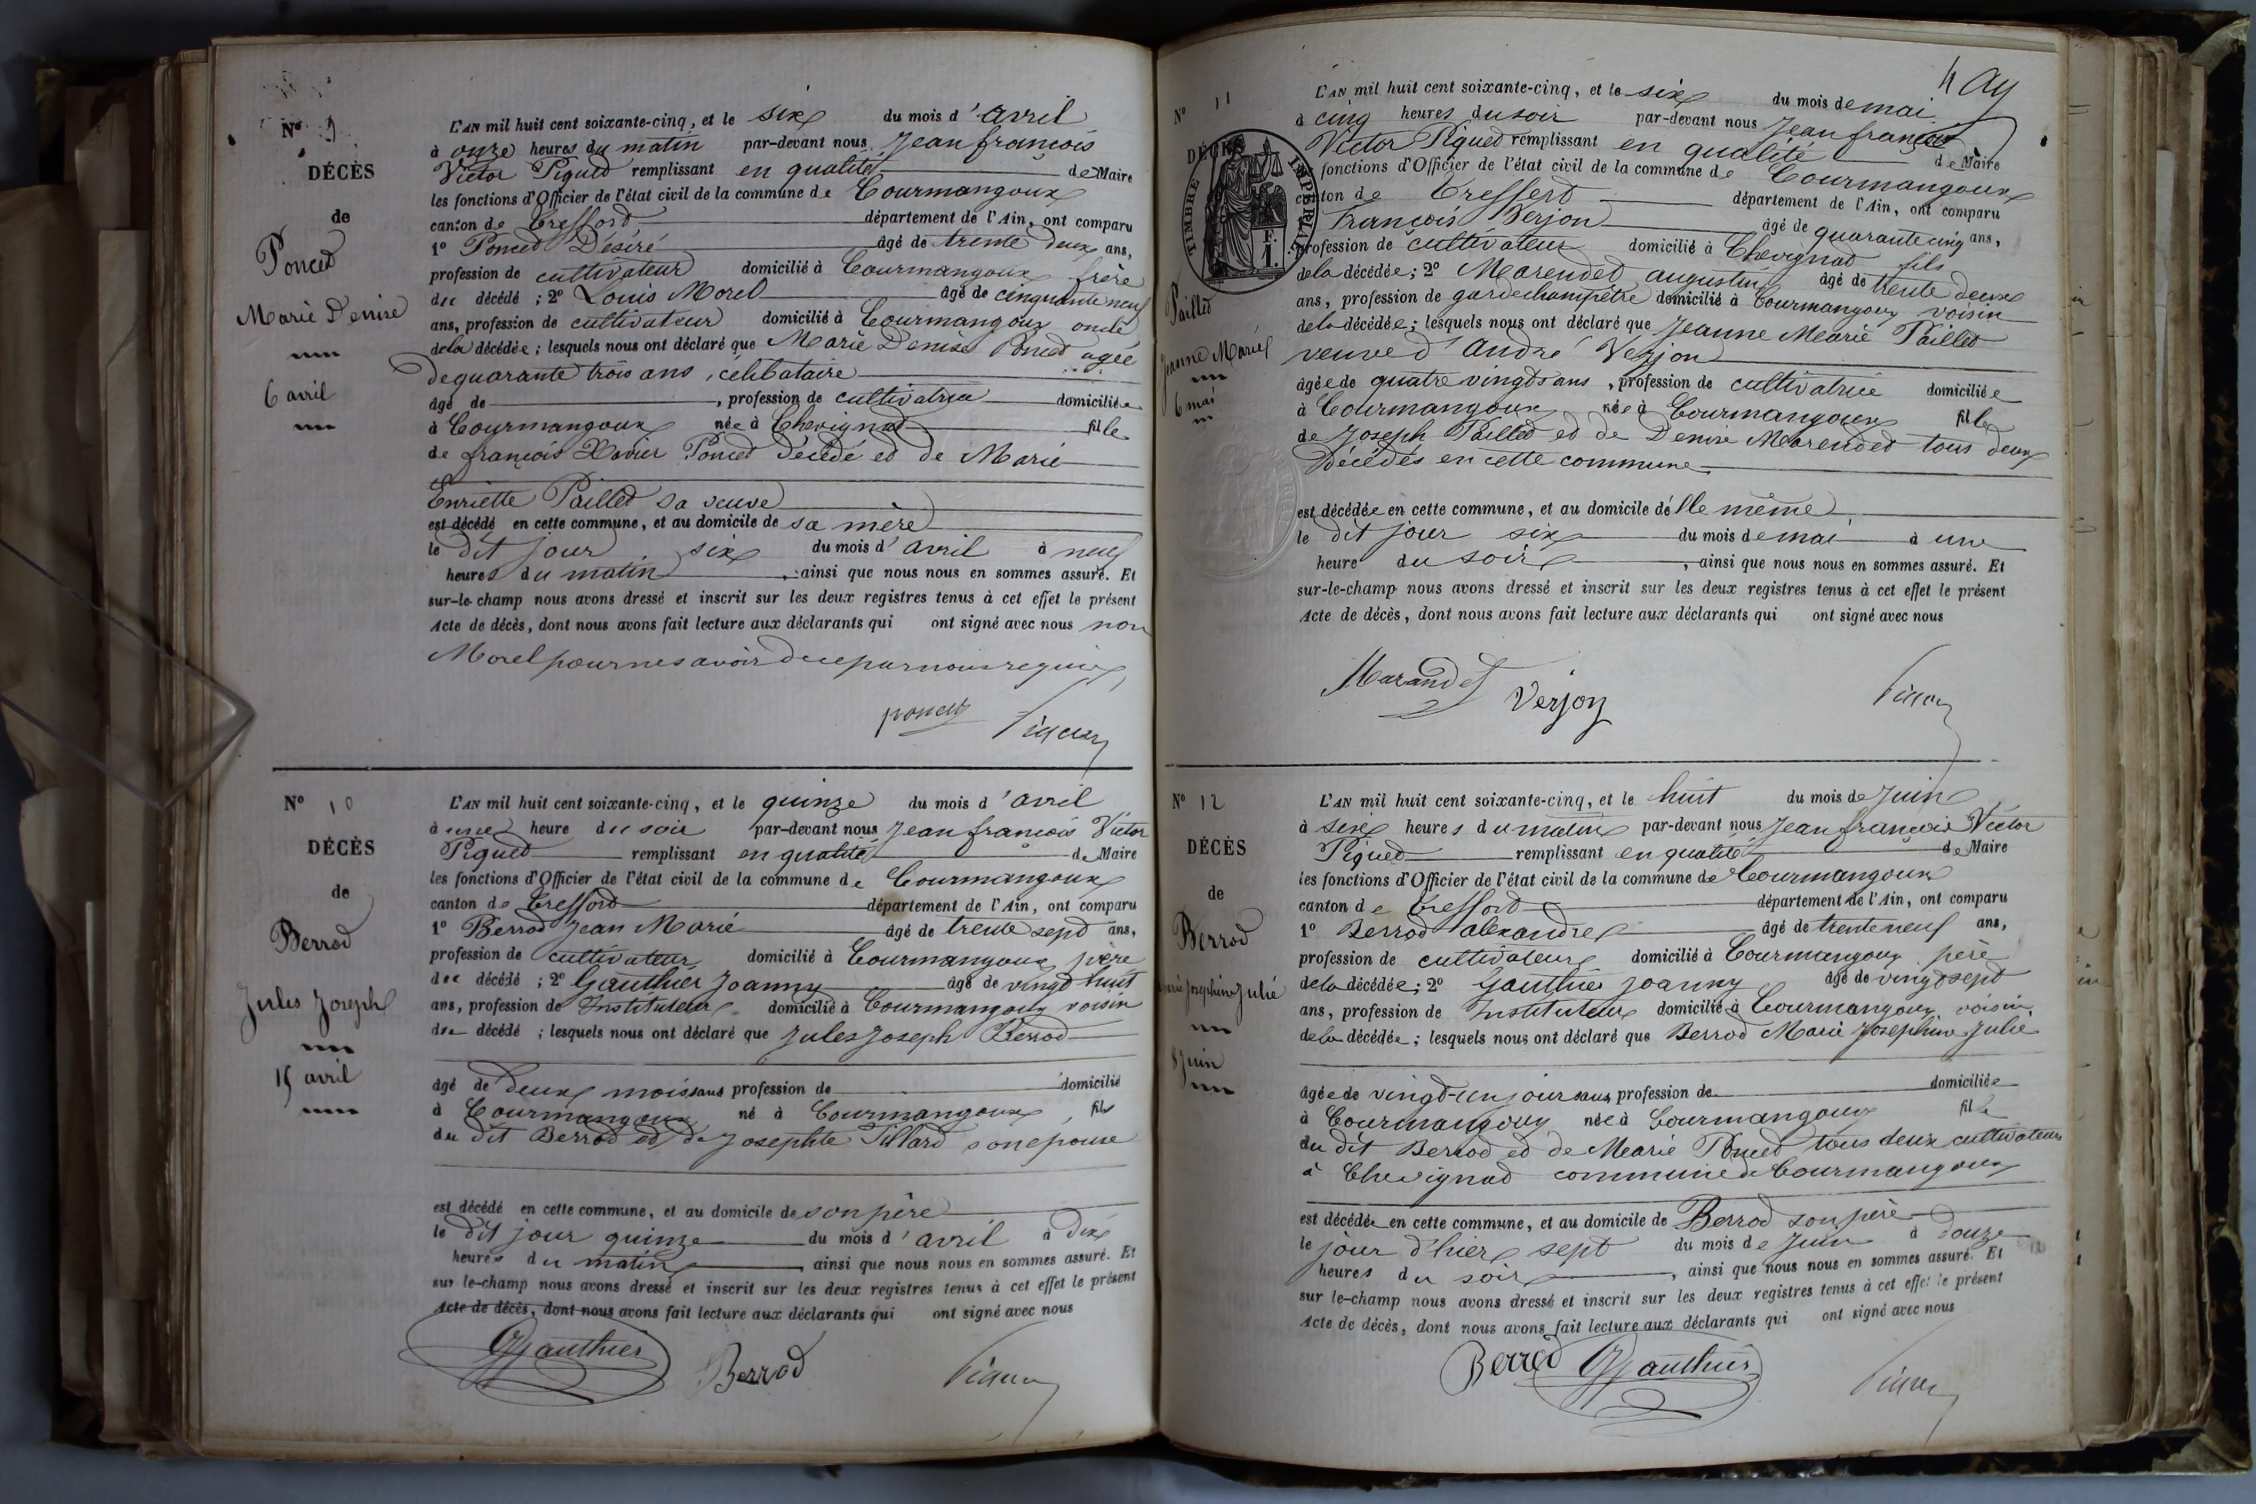 N° 9
DÉCÈS
de
Poncet
Marie Denise
6 avril
L'AN mil huit cent soixante-cinq, et le six du mois d'avril
à onze heures du matin par-devant nous Jean françois
Victor Piquet remplissant en qualité de Maire
les fonctions d'Officier de l'état civil de la commune de Courmangoux
canton de Treffort département de l'Ain, ont comparu
1° Poncet Désiré âgé de trente deux ans,
profession de cultivateur domicilié à Courmangoux frère
du décédé ; 2° Louis Morel âgé de cinquante neuf
ans, profession de cultivateur domicilié à Courmangoux oncle
de la décédée ; lesquels nous ont déclaré que Marie Denise Poncet agée
de quarante trois ans, célibataire
âgé de , profession de cultivatrice domiciliée
à Courmangoux née à Chevignat fille
de françois Xavier Poncet décédé et de Marie
Enriette Paillet sa veuve
est décédé en cette commune, et au domicile de sa mère
le dit jour six du mois d'avril à neuf
heures du matin , ainsi que nous nous en sommes assuré. Et
sur-le-champ nous avons dressé et inscrit sur les deux registres tenus à cet effet le présent
Acte de décès, dont nous avons fait lecture aux déclarants qui ont signé avec nous non
Morel pour ne savoir de ce par nous requis
poncet Piquet
N° 10
DÉCÈS
de
Berrod
Jules Joseph
15 avril
L'AN mil huit cent soixante-cinq, et le quinze du mois d'avril
à une heure du soir par-devant nous Jean françois Victor
Piquet remplissant en qualité de Maire
les fonctions d'Officier de l'état civil de la commune de Courmangoux
canton de Treffort département de l'Ain, ont comparu
1° Berrod Jean Marie âgé de trente sept ans,
profession de cultivateur domicilié à Courmangoux père
du décédé ; 2° Gauthier Joanny âgé de vingt huit
ans, profession de Instituteur domicilié à Courmangoux voisin
du décédé ; lesquels nous ont déclaré que Jules Joseph Berrod
âgé de deux mois sans profession de domicilié
à Courmangoux né à Courmangoux, fils
du dit Berrod et de Josephte Tillard son épouse
est décédé en cette commune, et au domicile de son père
le dit jour quinze du mois d'avril à dix
heures du matin , ainsi que nous nous en sommes assuré. Et
sur-le-champ nous avons dressé et inscrit sur les deux registres tenus à cet effet le présent
Acte de décès, dont nous avons fait lecture aux déclarants qui ont signé avec nous
Gauthier Berrod Piquet
N° 11
DÉCÈS
TIMBRE IMPERIAL
Paillet
Jeanne Marie
6 mai
L'AN mil huit cent soixante-cinq, et le six du mois de mai
à cinq heures du soir par-devant nous Jean françois
Victor Piquet remplissant en qualité de Maire
fonctions d'Officier de l'état civil de la commune de Courmangoux
canton de Treffort département de l'Ain, ont comparu
François Verjon âgé de quarante cinq ans,
profession de cultivateur domicilié à Chevignat fils
de la décédée ; 2° Marendet augustin âgé de trente deux
ans, profession de garde champêtre domicilié à Courmangoux voisin
de la décédée ; lesquels nous ont déclaré que Jeanne Marie Paillet
veuve d'André Verjon
âgée de quatre vingts ans, profession de cultivatrice domiciliée
à Courmangoux née à Courmangoux fille
de Joseph Paillet et de Denise Marendet tous deux
décédés en cette commune
est décédée en cette commune, et au domicile d'elle même
le dit jour six du mois de mai à une
heure du soir , ainsi que nous nous en sommes assuré. Et
sur-le-champ nous avons dressé et inscrit sur les deux registres tenus à cet effet le présent
Acte de décès, dont nous avons fait lecture aux déclarants qui ont signé avec nous
Marandet Verjon Piquet
N° 12
DÉCÈS
de
Berrod
Marie Josephine Julie
8 juin
L'AN mil huit cent soixante-cinq, et le huit du mois de Juin
à six heures du matin par-devant nous Jean françois Victor
Piquet remplissant en qualité de Maire
les fonctions d'Officier de l'état civil de la commune de Courmangoux
canton de Treffort département de l'Ain, ont comparu
1° Berrod alexandre âgé de trente neuf ans,
profession de cultivateur domicilié à Courmangoux père
de la décédée ; 2° Gauthier Joanny âgé de vingt sept
ans, profession de Instituteur domicilié à Courmangoux voisin
de la décédée ; lesquels nous ont déclaré que Berrod Marie Josephine Julie
âgée de vingt-un jour sans profession de domiciliée
à Courmangoux née à Courmangoux fille
du dit Berrod et de Marie Poncet tous deux cultivateurs
à Chevignat commune de Courmangoux
est décédée en cette commune, et au domicile de Berrod son père
le jour d'hier sept du mois de Juin à douze
heures du soir , ainsi que nous nous en sommes assuré. Et
sur le-champ nous avons dressé et inscrit sur les deux registres tenus à cet effet le présent
Acte de décès, dont nous avons fait lecture aux déclarants qui ont signé avec nous
Berrod Gauthier Piquet